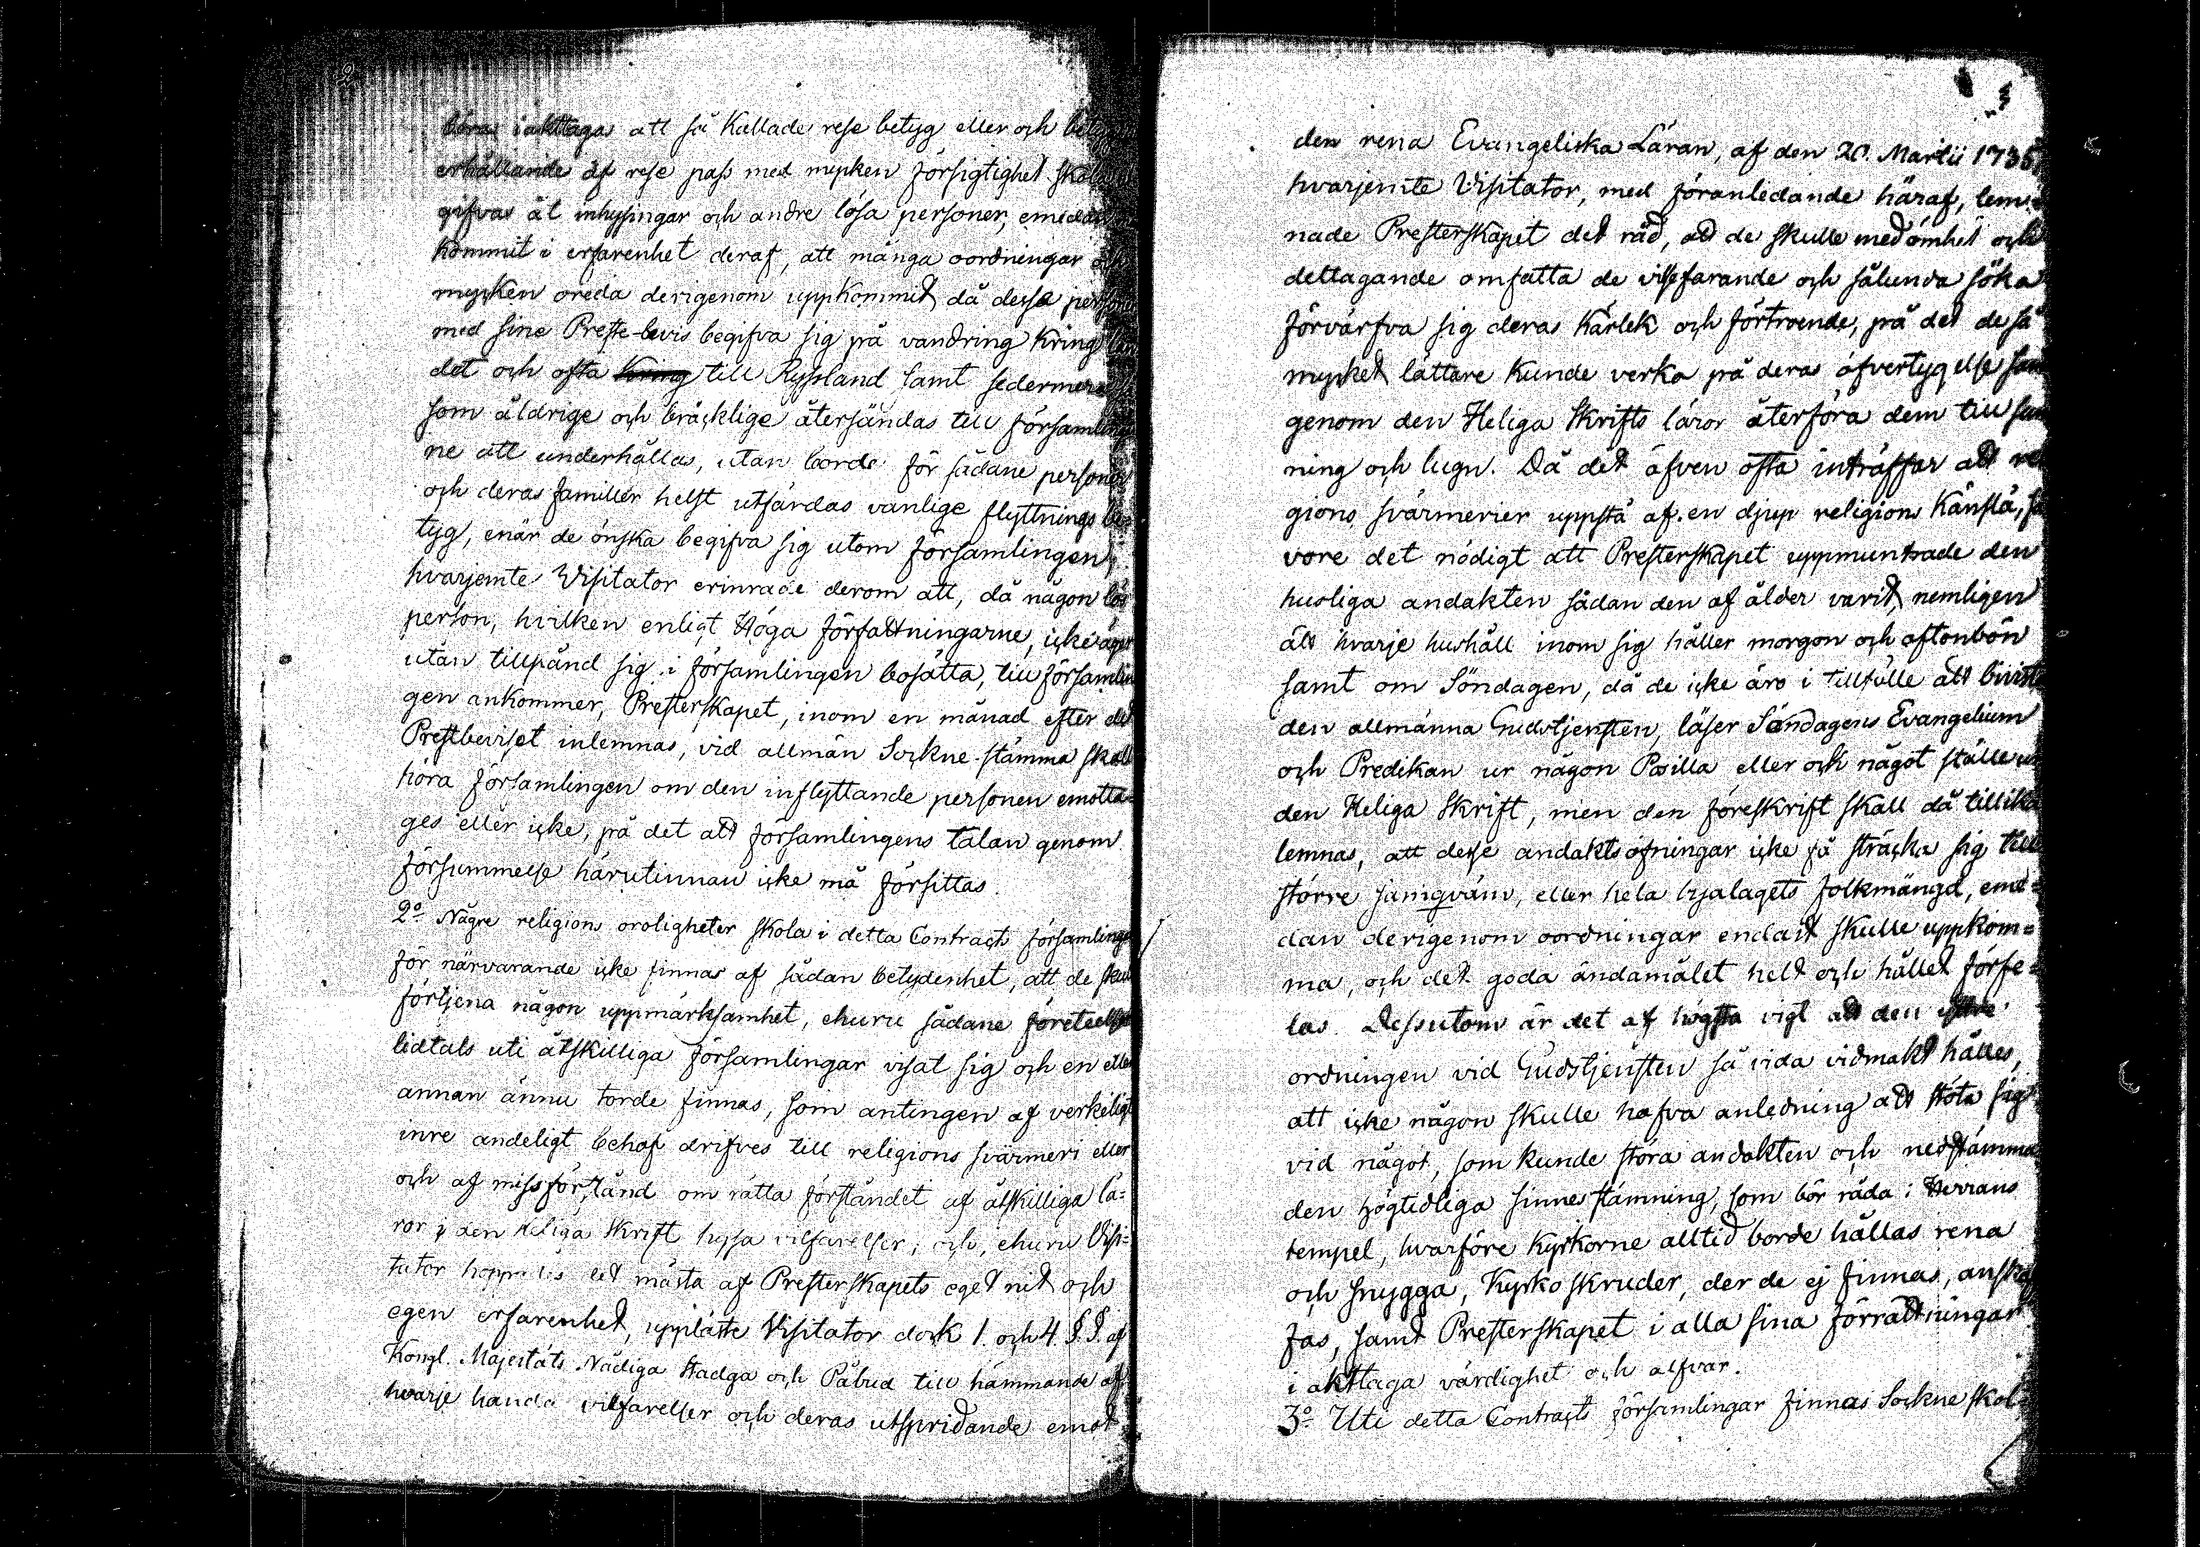 böra iakttaga att så kallade rese betyg eller och betyg
erhållande af rese pass med mycken försigtighet skola
gifvas åt inhysingar och andre lösa personer, emedan
kommit i erfarenhet deraf, att många oordningar och
mycken oreda derigenom uppkommit då desse personer
med sine Preste-bevis begifva sig på vandring kring lan
det och ofta kring till Ryssland samt sedermera
som åldrige och bräcklige återsändas till församlingar
ne att underhålla, utan borde för sådane personer
och deras familler helst utfärdas vanlige flyttnings be-
tyg, enär de önska begifva sig utom församlingen,
hvarjemte Visitator erinrade derom att, då någon lös
person, hvilken enligt Höga författningarne, icke äger
utan tillstånd sig i församlingen bosätta, till församlin
gen ankommer, Presterskapet, inom en månad efter det
Prestbeviset inlemnas, vid allmän Sockne-stämma skall
höra församlingen om den inflyttande personen emotta-
ges eller icke, på det att församlingens talan genom
försummelse härutinnan icke må försittas.
2:o Någre religions oroligheter skola i detta Contracts församlingar
för närvarande icke finnas af sådan betydenhet, att de skulle
förtjena någon uppmärksamhet, ehuru sådane företeelser
lidtals uti åtskilliga församlingar visat sig och en eller
annan ännu torde finnas, som antingen af verkeligt
inre andeligt behof drifves till religions svärmeri eller
och af missförstånd om rätta förståndet af åtskilliga lä-
ror i den Heliga Skrift hysa vilfarelser; och, ehuru Visi-
tator hoppades det mästa af Presterskapets eget nit och
egen erfarenhet, uppläste Visitator dock 1. och 4. §.§. af
Kongl. Majestäts Nådiga Stadga och Påbud till hämmande af
hvarje handa vilfarelser och deras utspridande emot
3
den rena Evangeliska Läran, af den 20. Martii 1735,
hvarjemte Visitator, med föranledande häraf, lem-
nade Presterskapet det råd, att de skulle med ömhet och
deltagande omfatta de villfarande och sålunda söka
förvärfva sig deras kärlek och förtroende, på det de så
mycket lättare kunde verka på deras öfvertygelse sam
genom den Heliga Skrifts läror återföra dem till san
ning och lugn. Då det äfven ofta inträffar att reli
gions svärmerier uppstå af en djup religions känsla, så
vore det nödigt att Presterskapet uppmuntrade den
husliga andakten sådan den af ålder varit, nemligen
att hvarje hushåll inom sig håller morgon och aftonbön
samt om Söndagen, då de icke äro i tillfälle att bivista
den allmänna Gudstjensten, läser Söndagens Evangelium
och Predikan ur någon Postilla eller och något ställe ur
den Heliga Skrift, men den föreskrift skall då tillika
lemnas, att desse andaktsöfningar icke få sträcka sig till
större samqväm, eller hela byalagets folkmängd, eme-
dan derigenom oordningar endast skulle uppkom-
ma, och det goda ändamålet helt och hållet förfe-
las. Dessutom är det af högsta vigt att den yttre
ordningen vid Gudstjensten så vida vidmakt hålles,
att icke någon skulle hafva anledning att stöta sig
vid något, som kunde störa andakten och nedstämma
den högtidliga sinnesstämning, som bör råda i Herrans
tempel, hvarföre kyrkorne alltid borde hållas rena
och snygga, kyrko skruder, der de ej finnas, anskaf
fas, samt Presterskapet i alla sina förrättningar
i akttaga värdighet och alfvar.
3:o Uti detta Contracts församlingar finnas Sockne skol